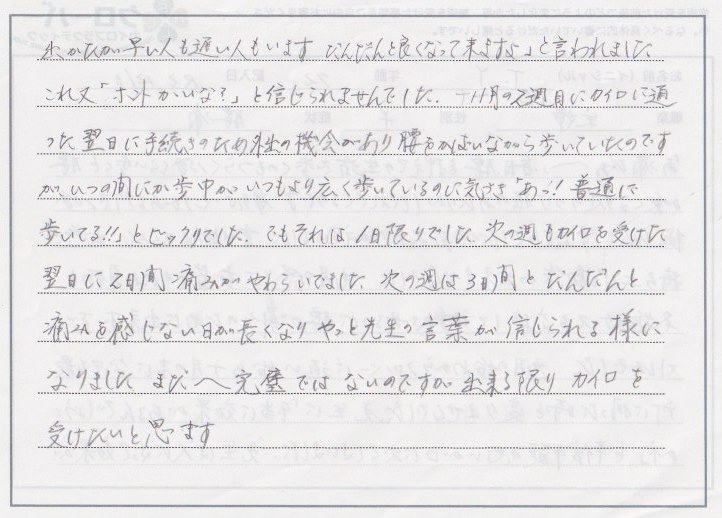 出かたが早い人も遅い人もいます だんだんと良くなって来ますよ」と言われました
これ又「ホントかいな?」と信じられませんでした。11月の2週目にカイロに通
った翌日に手続きのため外出の機会があり腰をかばいながら歩いていたのです
が、いつの間にか歩巾がいつもより広く歩いているのに気づき"あっ! 普通に
歩いてる!!」とビックリでした。でもそれは1日限りでした 次の週もカイロを受けた
翌日に2日間痛みがやわらいでました 次の週は3日間とだんだんと
痛みを感じない日が長くなりやっと先生の言葉が信じられる様に
なりました まだ 完璧ではないのですが出来る限りカイロを
受けたいと思います